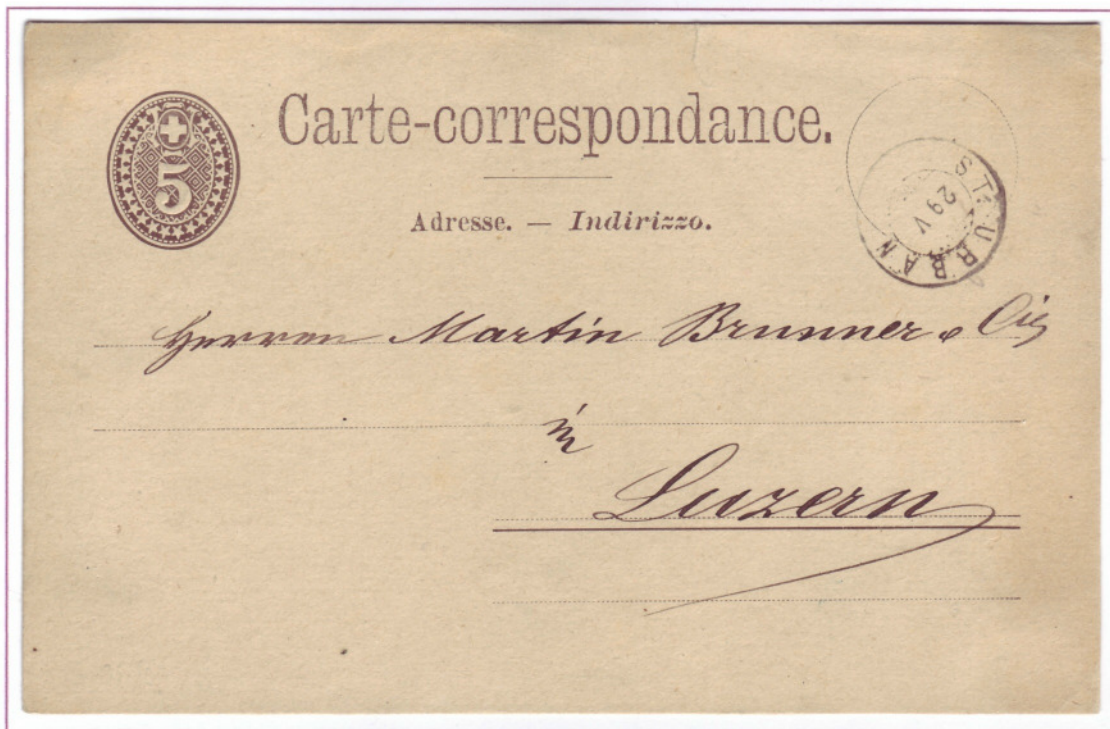 5
Carte-correspondance.
Adresse. — Indirizzo.
ST. URBAN
29 V
Herren Martin Brunner & Cie
in
Luzern